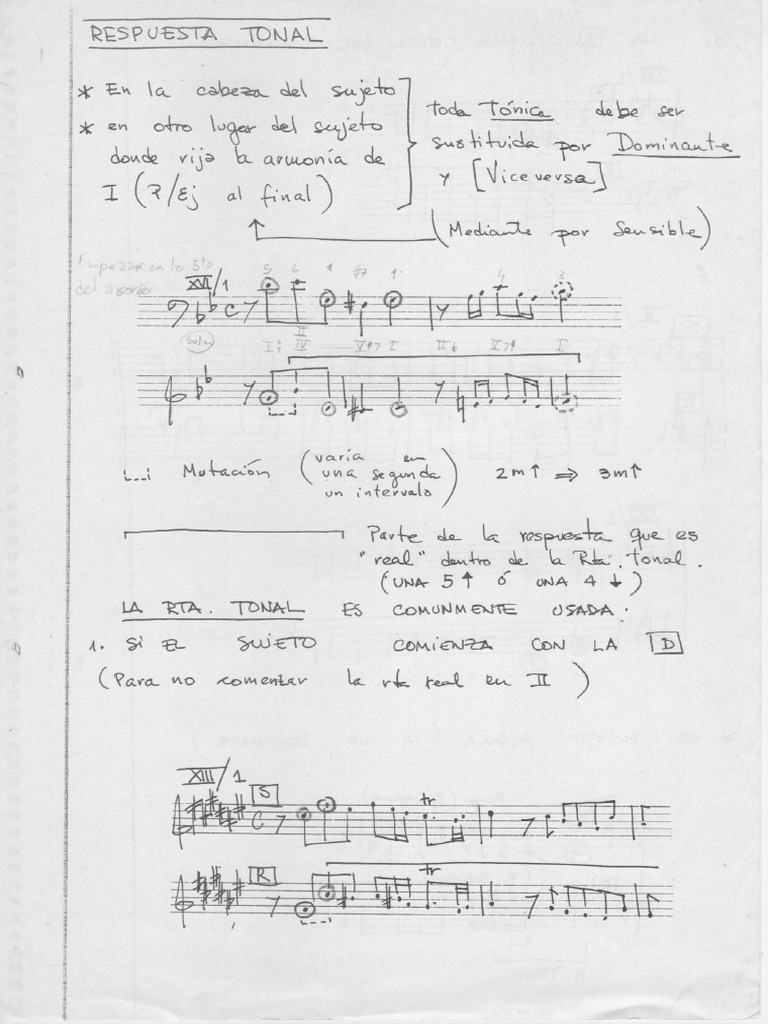 RESPUESTA TONAL
* En la cabeza del sujeto
* en otro lugar del sujeto
donde rija la armonía de
I (P/Ej al final)
toda Tónica debe ser
sustituida por Dominante
y [Viceversa]
(Mediante por Sensible)
Empezar en la 5ta
del acorde
XVI/1
5 6 1 #7 1 4 3
Solm
II
I IV V#7 I II6 V7 I
Mutación (varía en
una segunda
un intervalo) 2m↑ ⇒ 3m↑
Parte de la respuesta que es
"real" dentro de la Rta. Tonal.
(UNA 5↑ ó UNA 4↓)
LA RTA. TONAL ES COMUNMENTE USADA:
1. SI EL SUJETO COMIENZA CON LA D
(Para no comenzar la rta real en II)
XIII/1
S
tr
R
tr